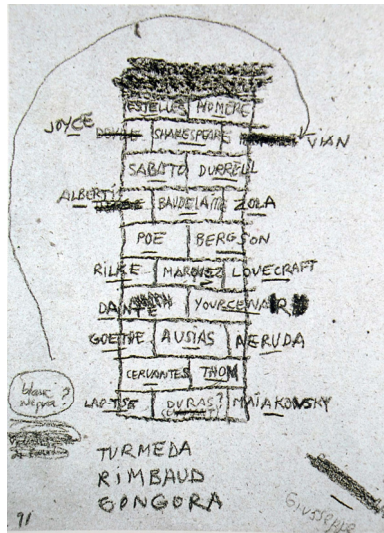 ESTELLÉS HOMERE
JOYCE SHAKESPEARE VIAN
SABATO DURRELL
ALBERTI BAUDELAIRE ZOLA
POE BERGSON
RILKE MARQUEZ LOVECRAFT
DANTE YOURCENAR
GOETHE AUSIAS NERUDA
CERVANTES THOM
blanc
negre?
LAO-TSE DURAS? MAÏAKOVSKY
TURMEDA
RIMBAUD
GONGORA
Giusseppe
91